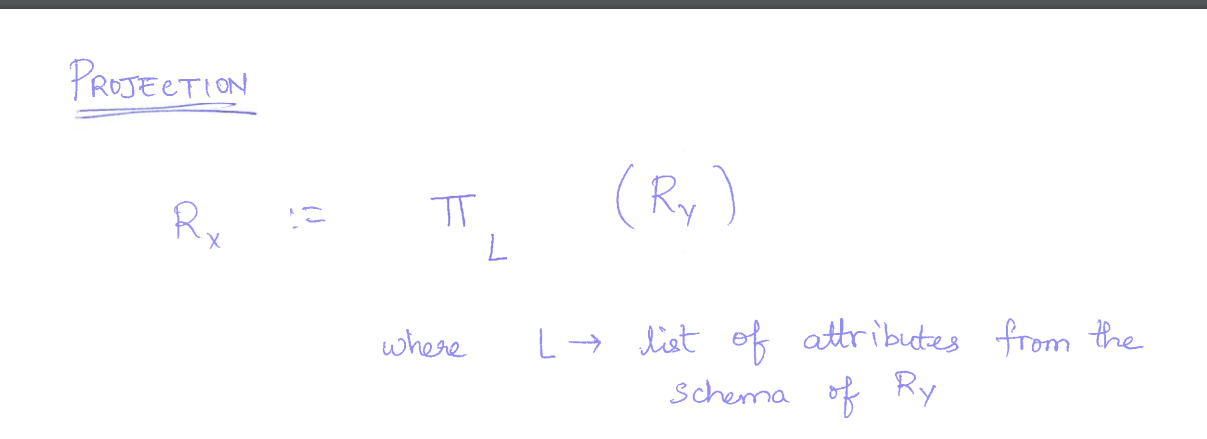 PROJECTION
Rx := π L (Ry)
where L → list of attributes from the
schema of Ry